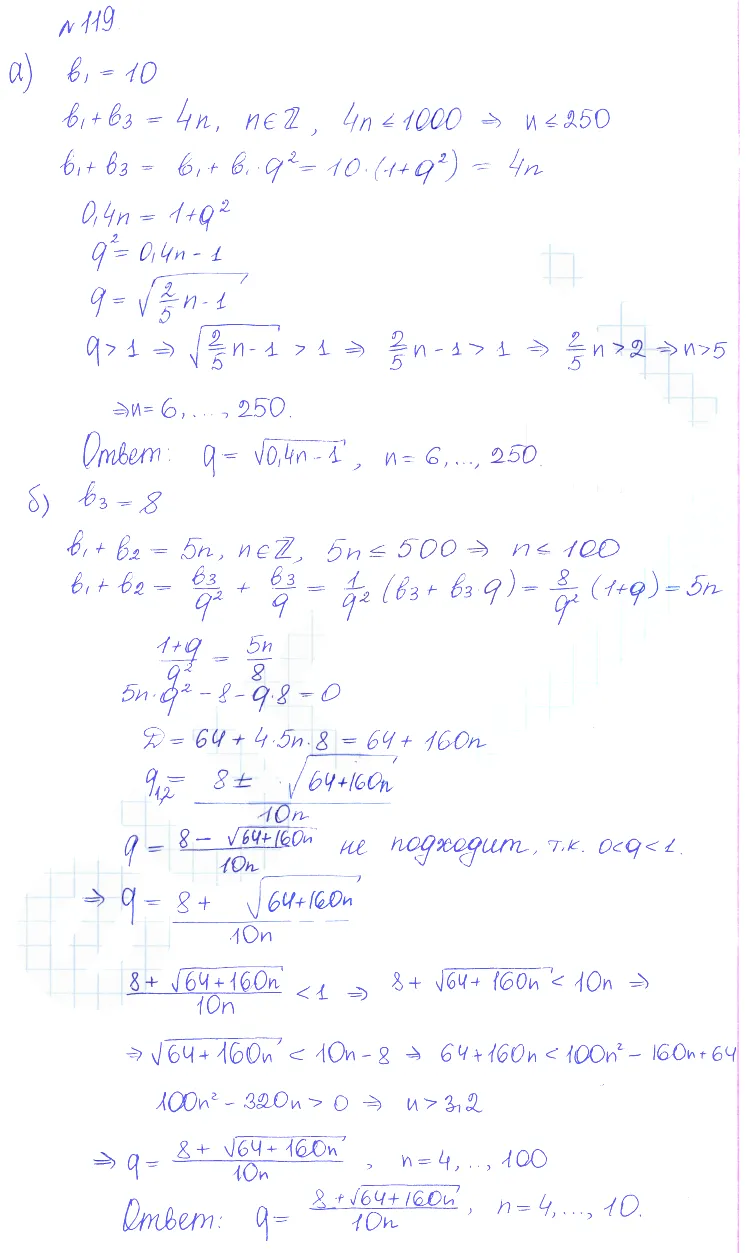 №119
а) b₁ = 10
b₁ + b₃ = 4n, n∈ℤ, 4n ≤ 1000 ⇒ n ≤ 250
b₁ + b₃ = b₁ + b₁·q² = 10·(1+q²) = 4n
0,4n = 1+q²
q² = 0,4n − 1
q = √(2/5 n − 1)
q > 1 ⇒ √(2/5 n − 1) > 1 ⇒ 2/5 n − 1 > 1 ⇒ 2/5 n > 2 ⇒ n > 5
⇒ n = 6, ..., 250.
Ответ: q = √(0,4n − 1), n = 6, ..., 250.
б) b₃ = 8
b₁ + b₂ = 5n, n∈ℤ, 5n ≤ 500 ⇒ n ≤ 100
b₁ + b₂ = b₃/q² + b₃/q = 1/q² (b₃ + b₃·q) = 8/q² (1+q) = 5n
(1+q)/q² = 5n/8
5n·q² − 8 − q·8 = 0
D = 64 + 4·5n·8 = 64 + 160n
q₁,₂ = (8 ± √(64+160n))/10n
q = (8 − √(64+160n))/10n не подходит, т.к. 0<q<1.
⇒ q = (8 + √(64+160n))/10n
(8 + √(64+160n))/10n < 1 ⇒ 8 + √(64+160n) < 10n ⇒
⇒ √(64+160n) < 10n − 8 ⇒ 64+160n < 100n² − 160n + 64
100n² − 320n > 0 ⇒ n > 3,2
⇒ q = (8 + √(64+160n))/10n, n = 4, ..., 100
Ответ: q = (8 + √(64+160n))/10n, n = 4, ..., 10.